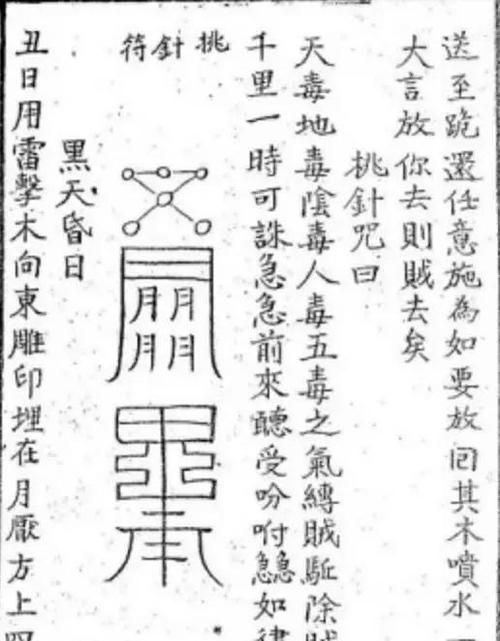 送至跪還任意施為如要放回其木噴水一
大言放你去則賊去矣
挑針咒曰
天毒地毒陰毒人毒五毒之氣縛賊駈除賊
千里一時可誅急急前來聽受吩咐急急如律
挑針符
月月
月月
黑天昏日
丑日用雷擊木向東雕印埋在月厭方上